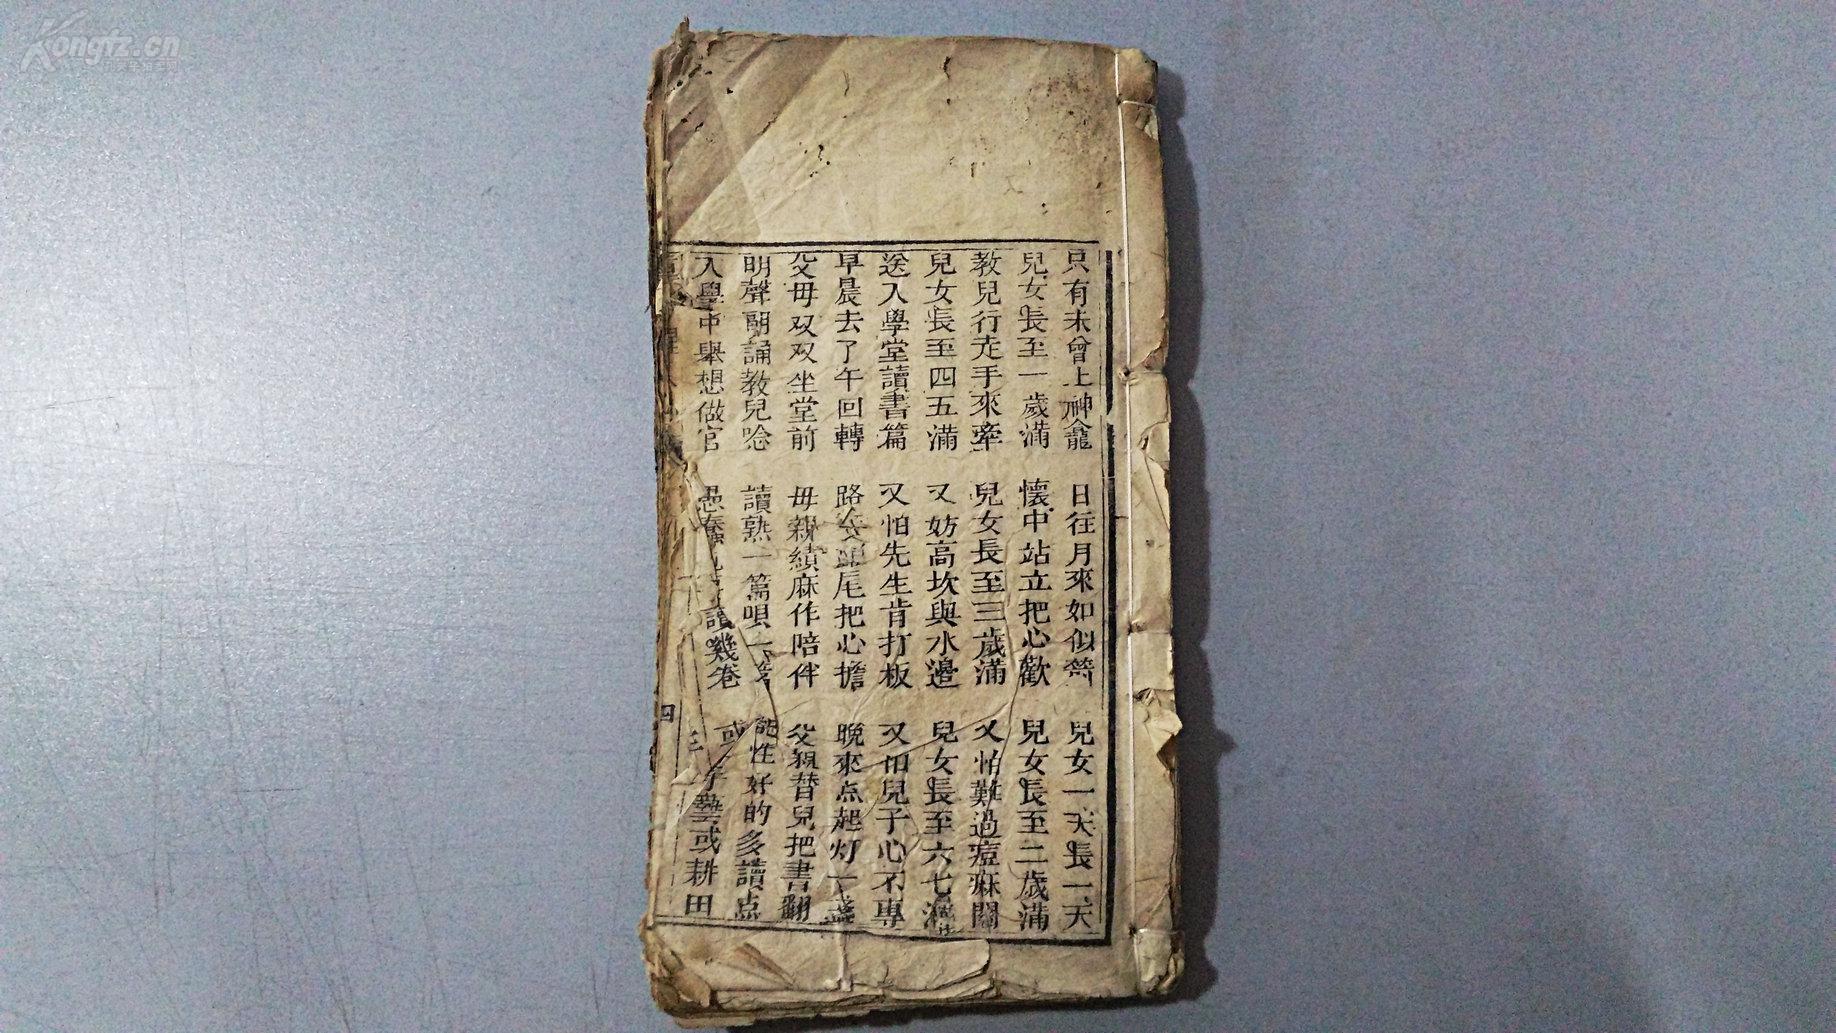 只有未曾上神龕 日往月來如似箭 兒女一天長一天
兒女長至一歲滿 懷中站立把心歡 兒女長至二歲滿
教兒行走手來牽 兒女長至三歲滿 又怕難過痘麻關
兒女長至四五滿 又妨高坎與水邊 兒女長至六七滿
送入學堂讀書篇 又怕先生肯打板 又怕兒子心不專
早晨去了午回轉 路父頭尾把心擔 晚來点起灯一盞
父毋双双坐堂前 毋親績麻作陪伴 父親替兒把書翻
明聲朗誦教兒唸 讀熟一篇唄一 能性好的多讀点
入學中舉想做官 愚蠢 讀幾卷 或 手藝或耕田
四
Kongtz.cn